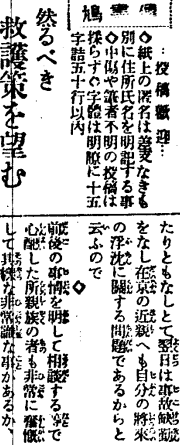 鳩黨書
…投稿歡迎…
◇紙上の匿名は差支なきも
別に住所氏名を明記する事
◇中傷や筆者不明の投稿は
採らず◇字體は明瞭に十五
字詰五十行以内
然るべき
救護策を望む
たりともなしとて翌日は事故缺勤
をなし在京の近親へも自分の將來
の浮沈に關する問題であるからと
云ふので
◇
前後の事情を明して相談するので
心配した所親族の者も非常に憤慨
して其樣な非常識な事があるか